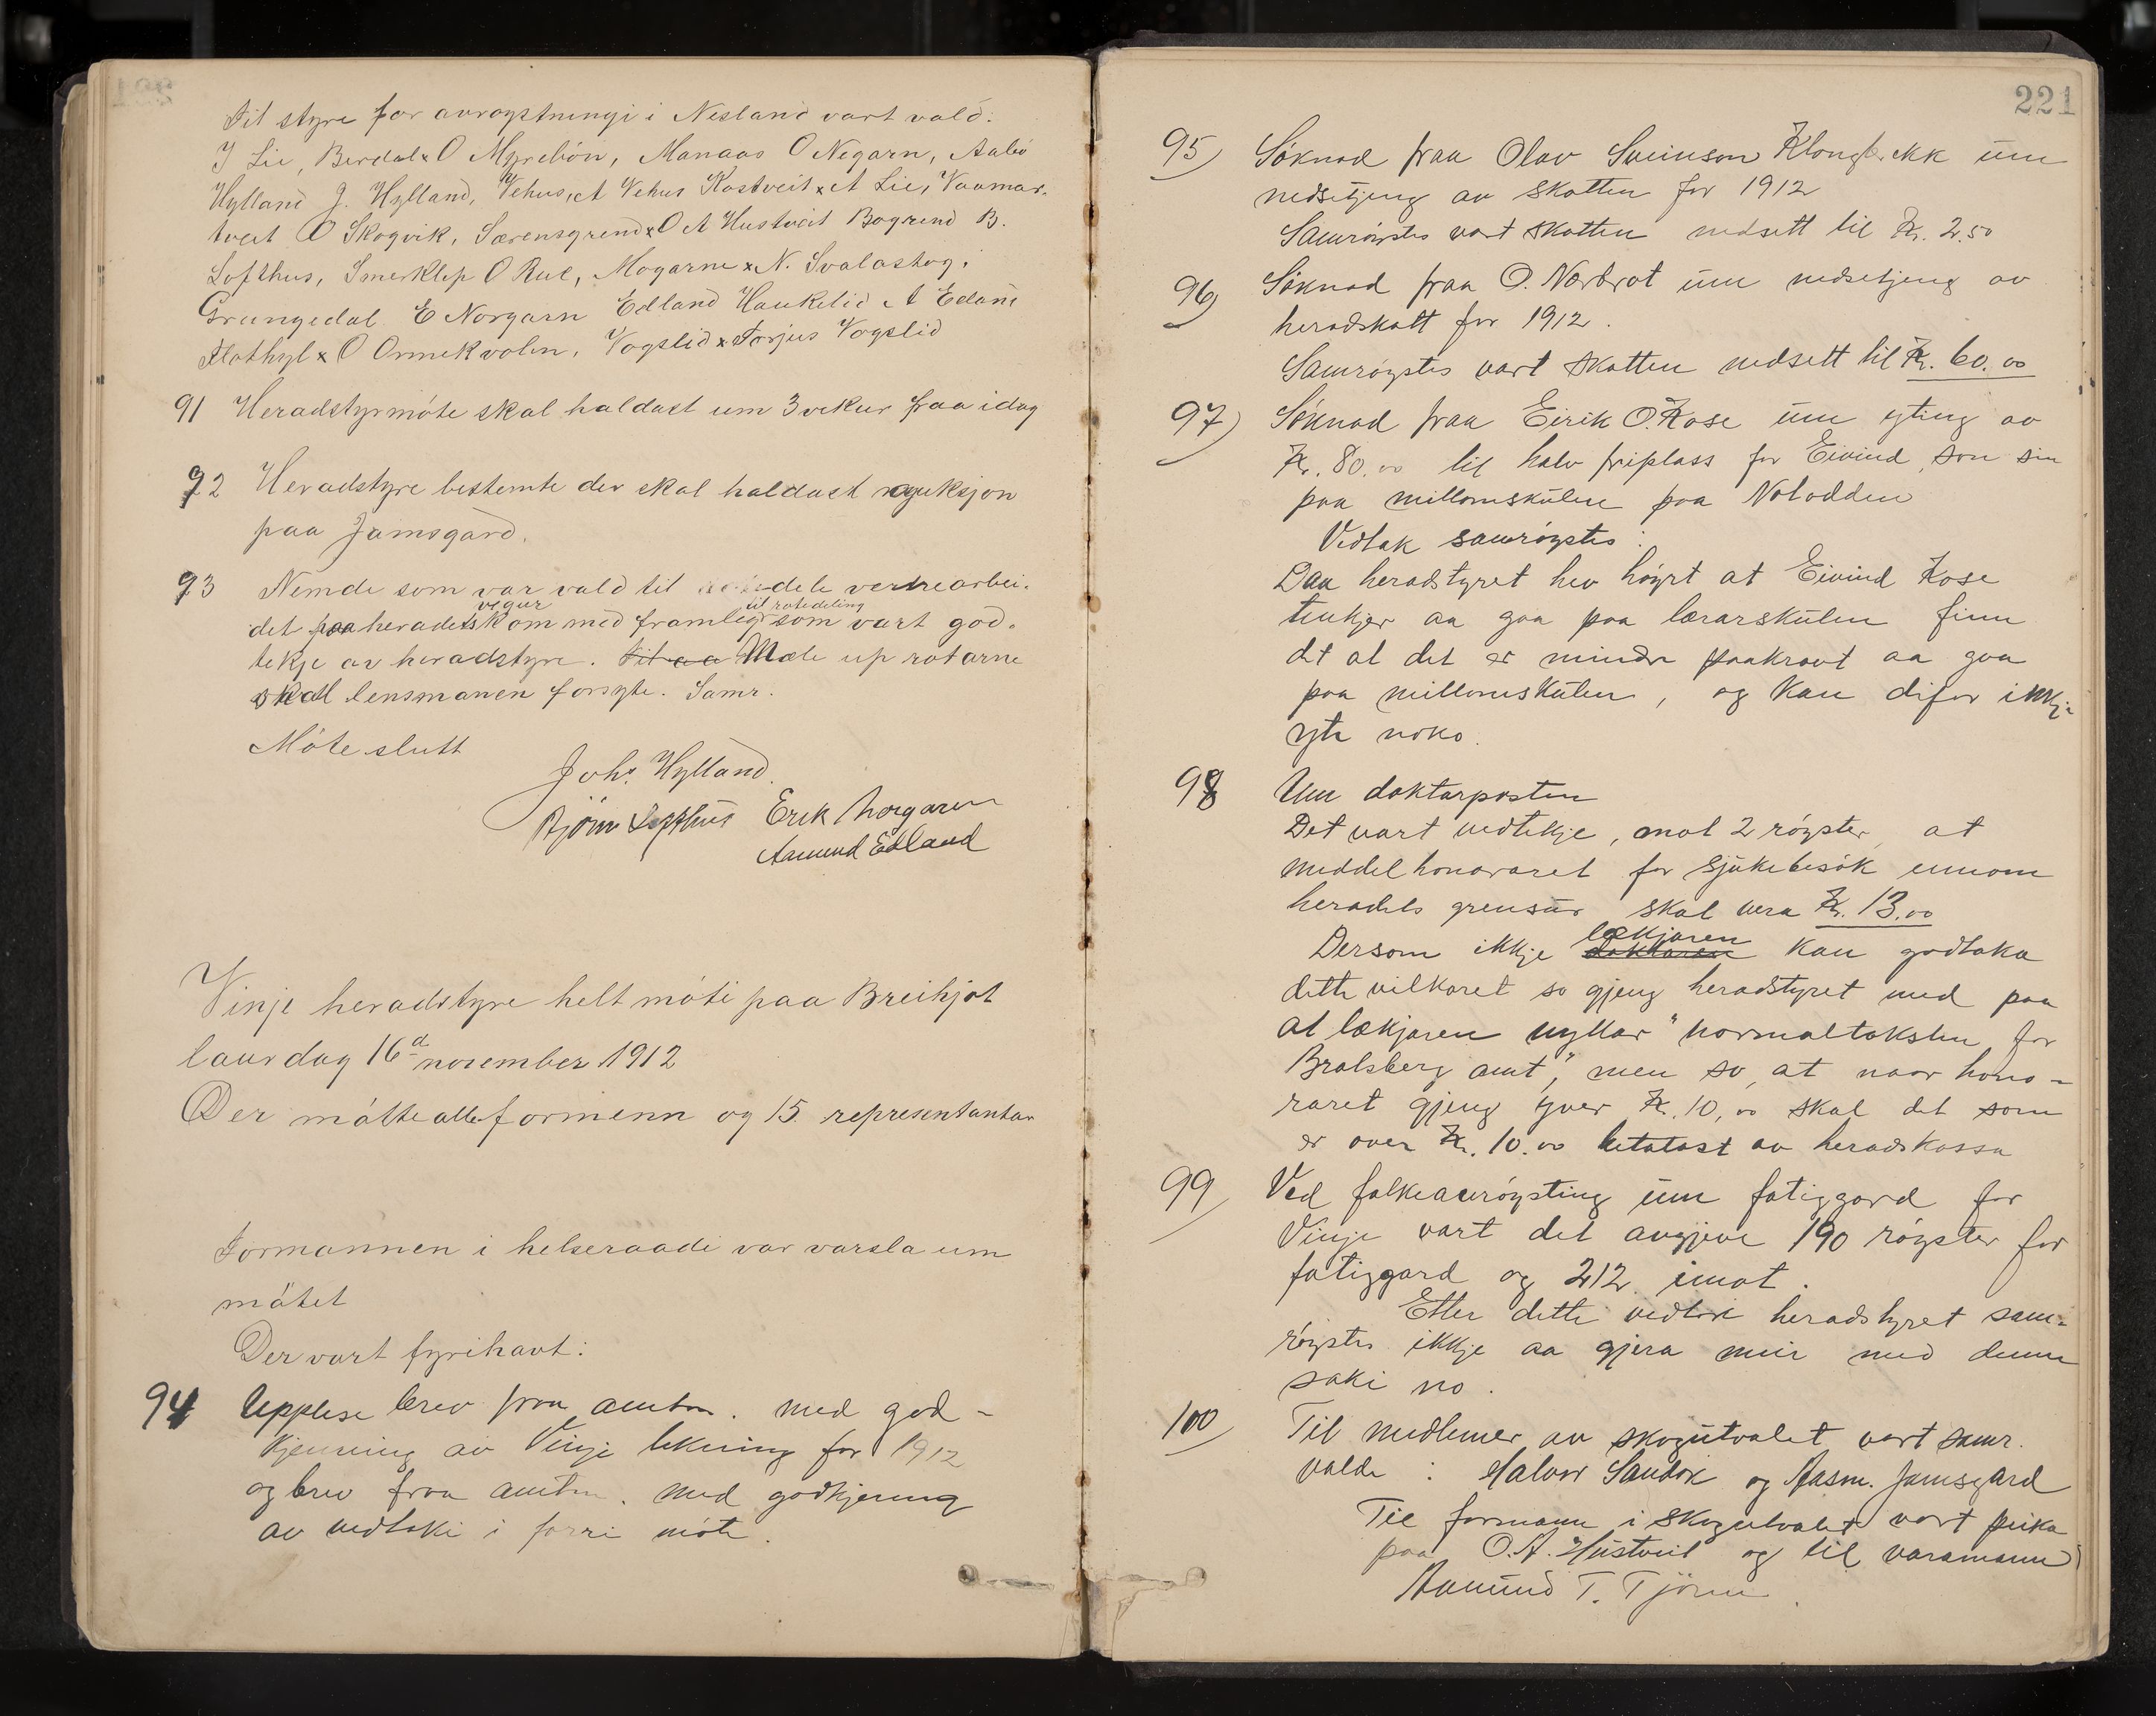 til styre for avrøystningi i Nesland vart vald:
J Lie, Berdal x O Myrebøn, Manaas O Negarn, Aabø
Hylland J. Hylland, Vehus, A Vehus Rastveit x A Lie, Vaamar-
tveit O Skogvik, Særensgrend x O A Hustveit Bøgrend B.
Lofthus, Smerklep O Rue, Mogarne x N. Svalastog,
Grungedal E Norgarn Edland Haukelid A Edland
Flothyl x O Ormekvolen, Vogslid x Torjus Vogslid
91 Heradstyrmøte skal haldast um 3 vekur fraa idag
92 Heradstyre bestemte der skal haldast
paa Jamsgard.
93 Nemde som var vald til dele vertrearbei-
vegur til rotedeling
det paa heradets kom med framlegg som vart god-
tekje av heradstyre. til aa Mæle up rotarne
skal lensmanen forsyte. Samr.
Møte slutt
Johs Hylland.
Bjørn Lofthus Erik Norgaren
Aamund Edland
Vinje heradstyre helt møti paa Breihjøt
laurdag 16d november 1912
Der møtte alle formenn og 15 representantar
Formannen i helseraadi var varsla um
møtet
Der vart fyrihavt:
94 Upplese brev fraa amtm. med god-
kjenning av Vinje likning for 1912
og brev fraa amtm. med godkjenning
av vedtaki i forri møte.
221
95) Søknad fraa Olav Sveinson um
nedsetjeng av skatten for 1912
Samrøystes vart skatten nedsett til Kr. 2.50
96) Søknad fraa O. Nørbrot um nedsetjeng av
heradskatt for 1912.
Samrøystes vart skatten nedsett til Kr. 60.00
97) Søknad fraa Eirik O. Kose um yting av
Kr. 80.00 til halv friplass for Eivind, son sin
paa millomskulen paa Notodden
Vedtak samrøystes:
Daa heradstyret hev høyrt at Eivind Kose
tenkjer aa gaa paa lærarskulen finn
det at det er mindre paakravt aa gaa
paa millomskulen, og kan difor ikkje
yte noko.
98 Um doktarposten
Det vart vedtekje, mot 2 røyster, at
meddelhonoraret for sjukebesøk innom
heradets grensur skal vera Kr. 13.00
lækjaren
Dersom ikkje doktaren kan godtaka
dette vilkaret so gjeng heradstyret med paa
at lækjaren nyttar "normaltaksten for
Bratsberg amt", men so, at naar hono-
raret gjeng yver Kr. 10,00 skal det som
er over Kr. 10.00 betalast av heradskassa
99) Ved folkeavrøysting um fatiggard for
Vinje vart det avgjeve 190 røyster for
fatiggard og 212 imot.
Etter dette vedtok heradstyret sam-
røystes ikkje aa gjera meir med denne
saki no.
100) Til medlemer av skogutvalet vart samr.
valde: Halvor Sandok og Aasm. Jamsgard
Til formann i skogutvalet vart peika
paa O. A. Hustveit og til varamann
Aamund T. Tjønn.